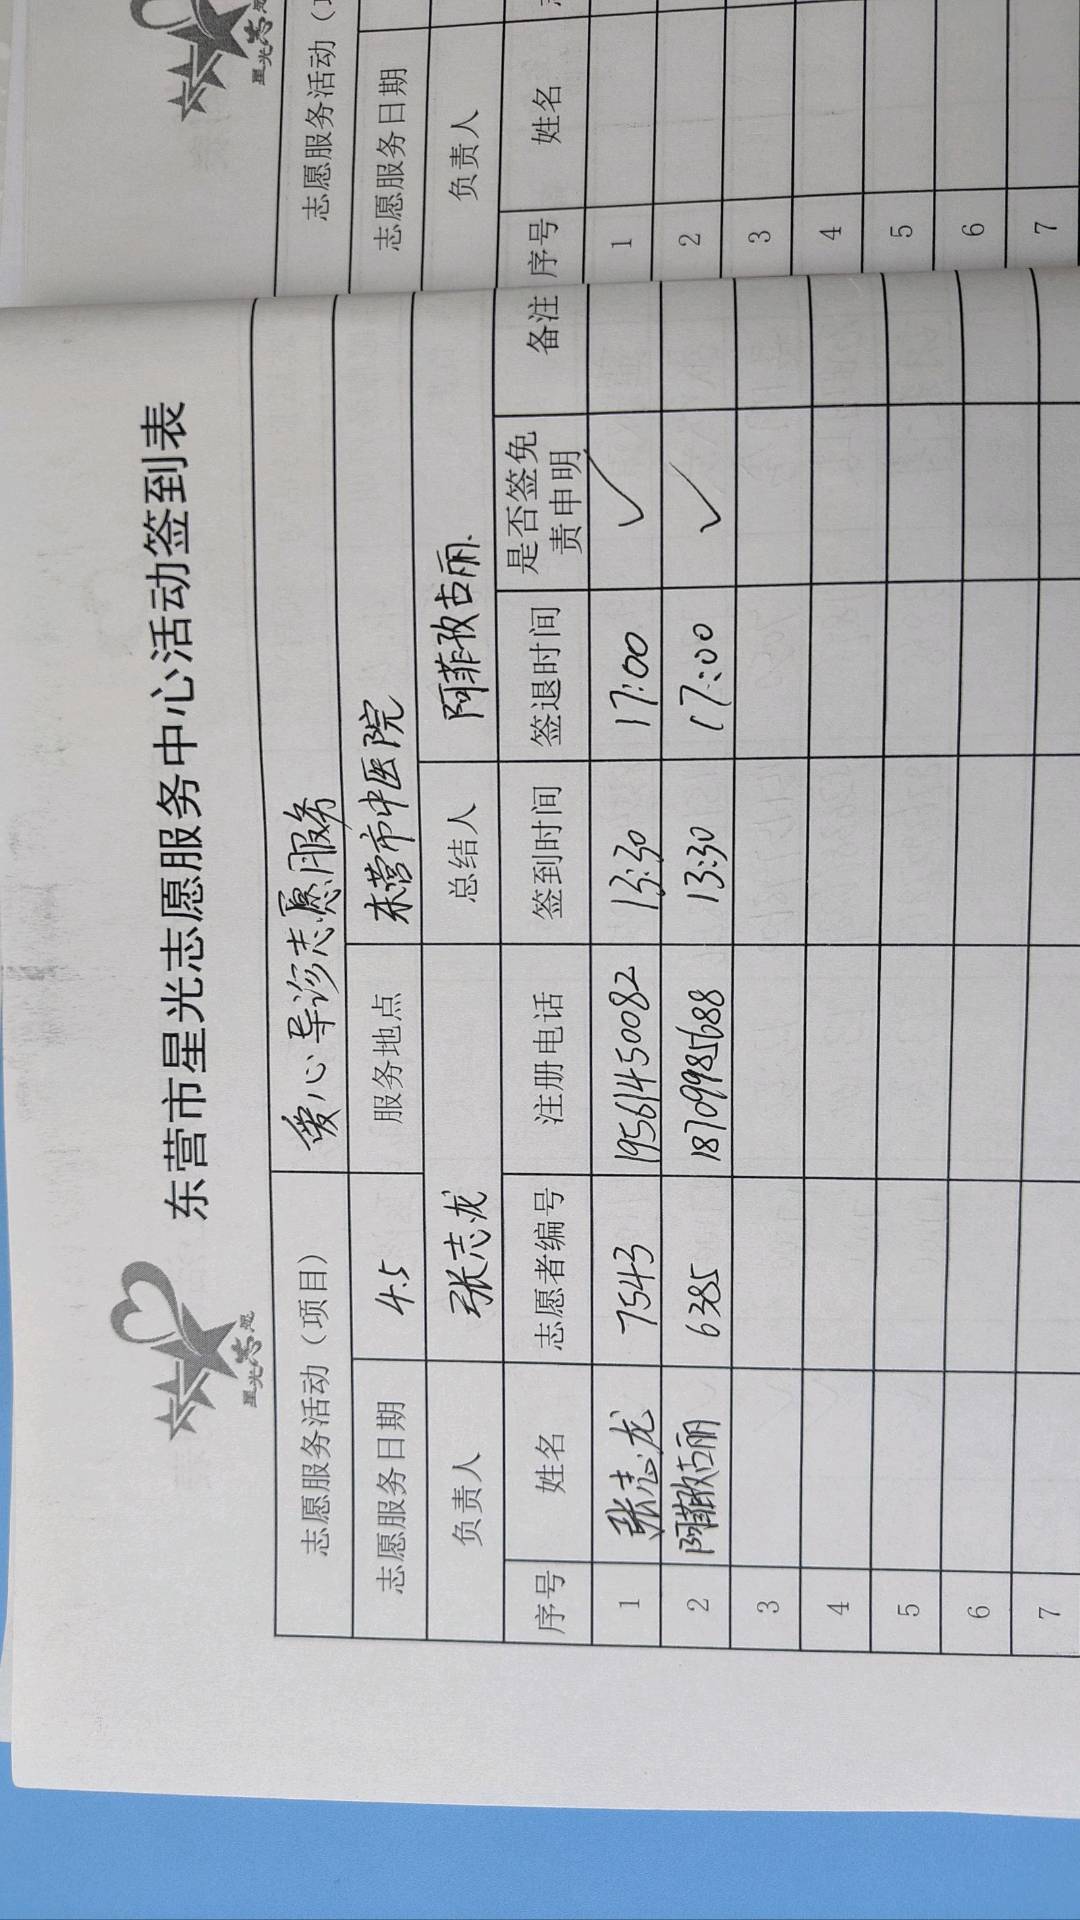 东营市星光志愿服务中心活动签到表
星光志愿
志愿服务活动（项目） 爱心导诊志愿服务
志愿服务日期 4.5 服务地点 东营市中医院
负责人 张志龙 总结人 阿菲孜古丽
序号 姓名 志愿者编号 注册电话 签到时间 签退时间 是否签免责申明 备注
1 张志龙 7543 19561450082 13:30 17:00 ✓
2 阿菲孜古丽 6385 18709985688 13:30 17:00 ✓
3
4
5
6
7
星光志愿
志愿服务活动（
志愿服务日期
负责人
序号 姓名
1
2
3
4
5
6
7